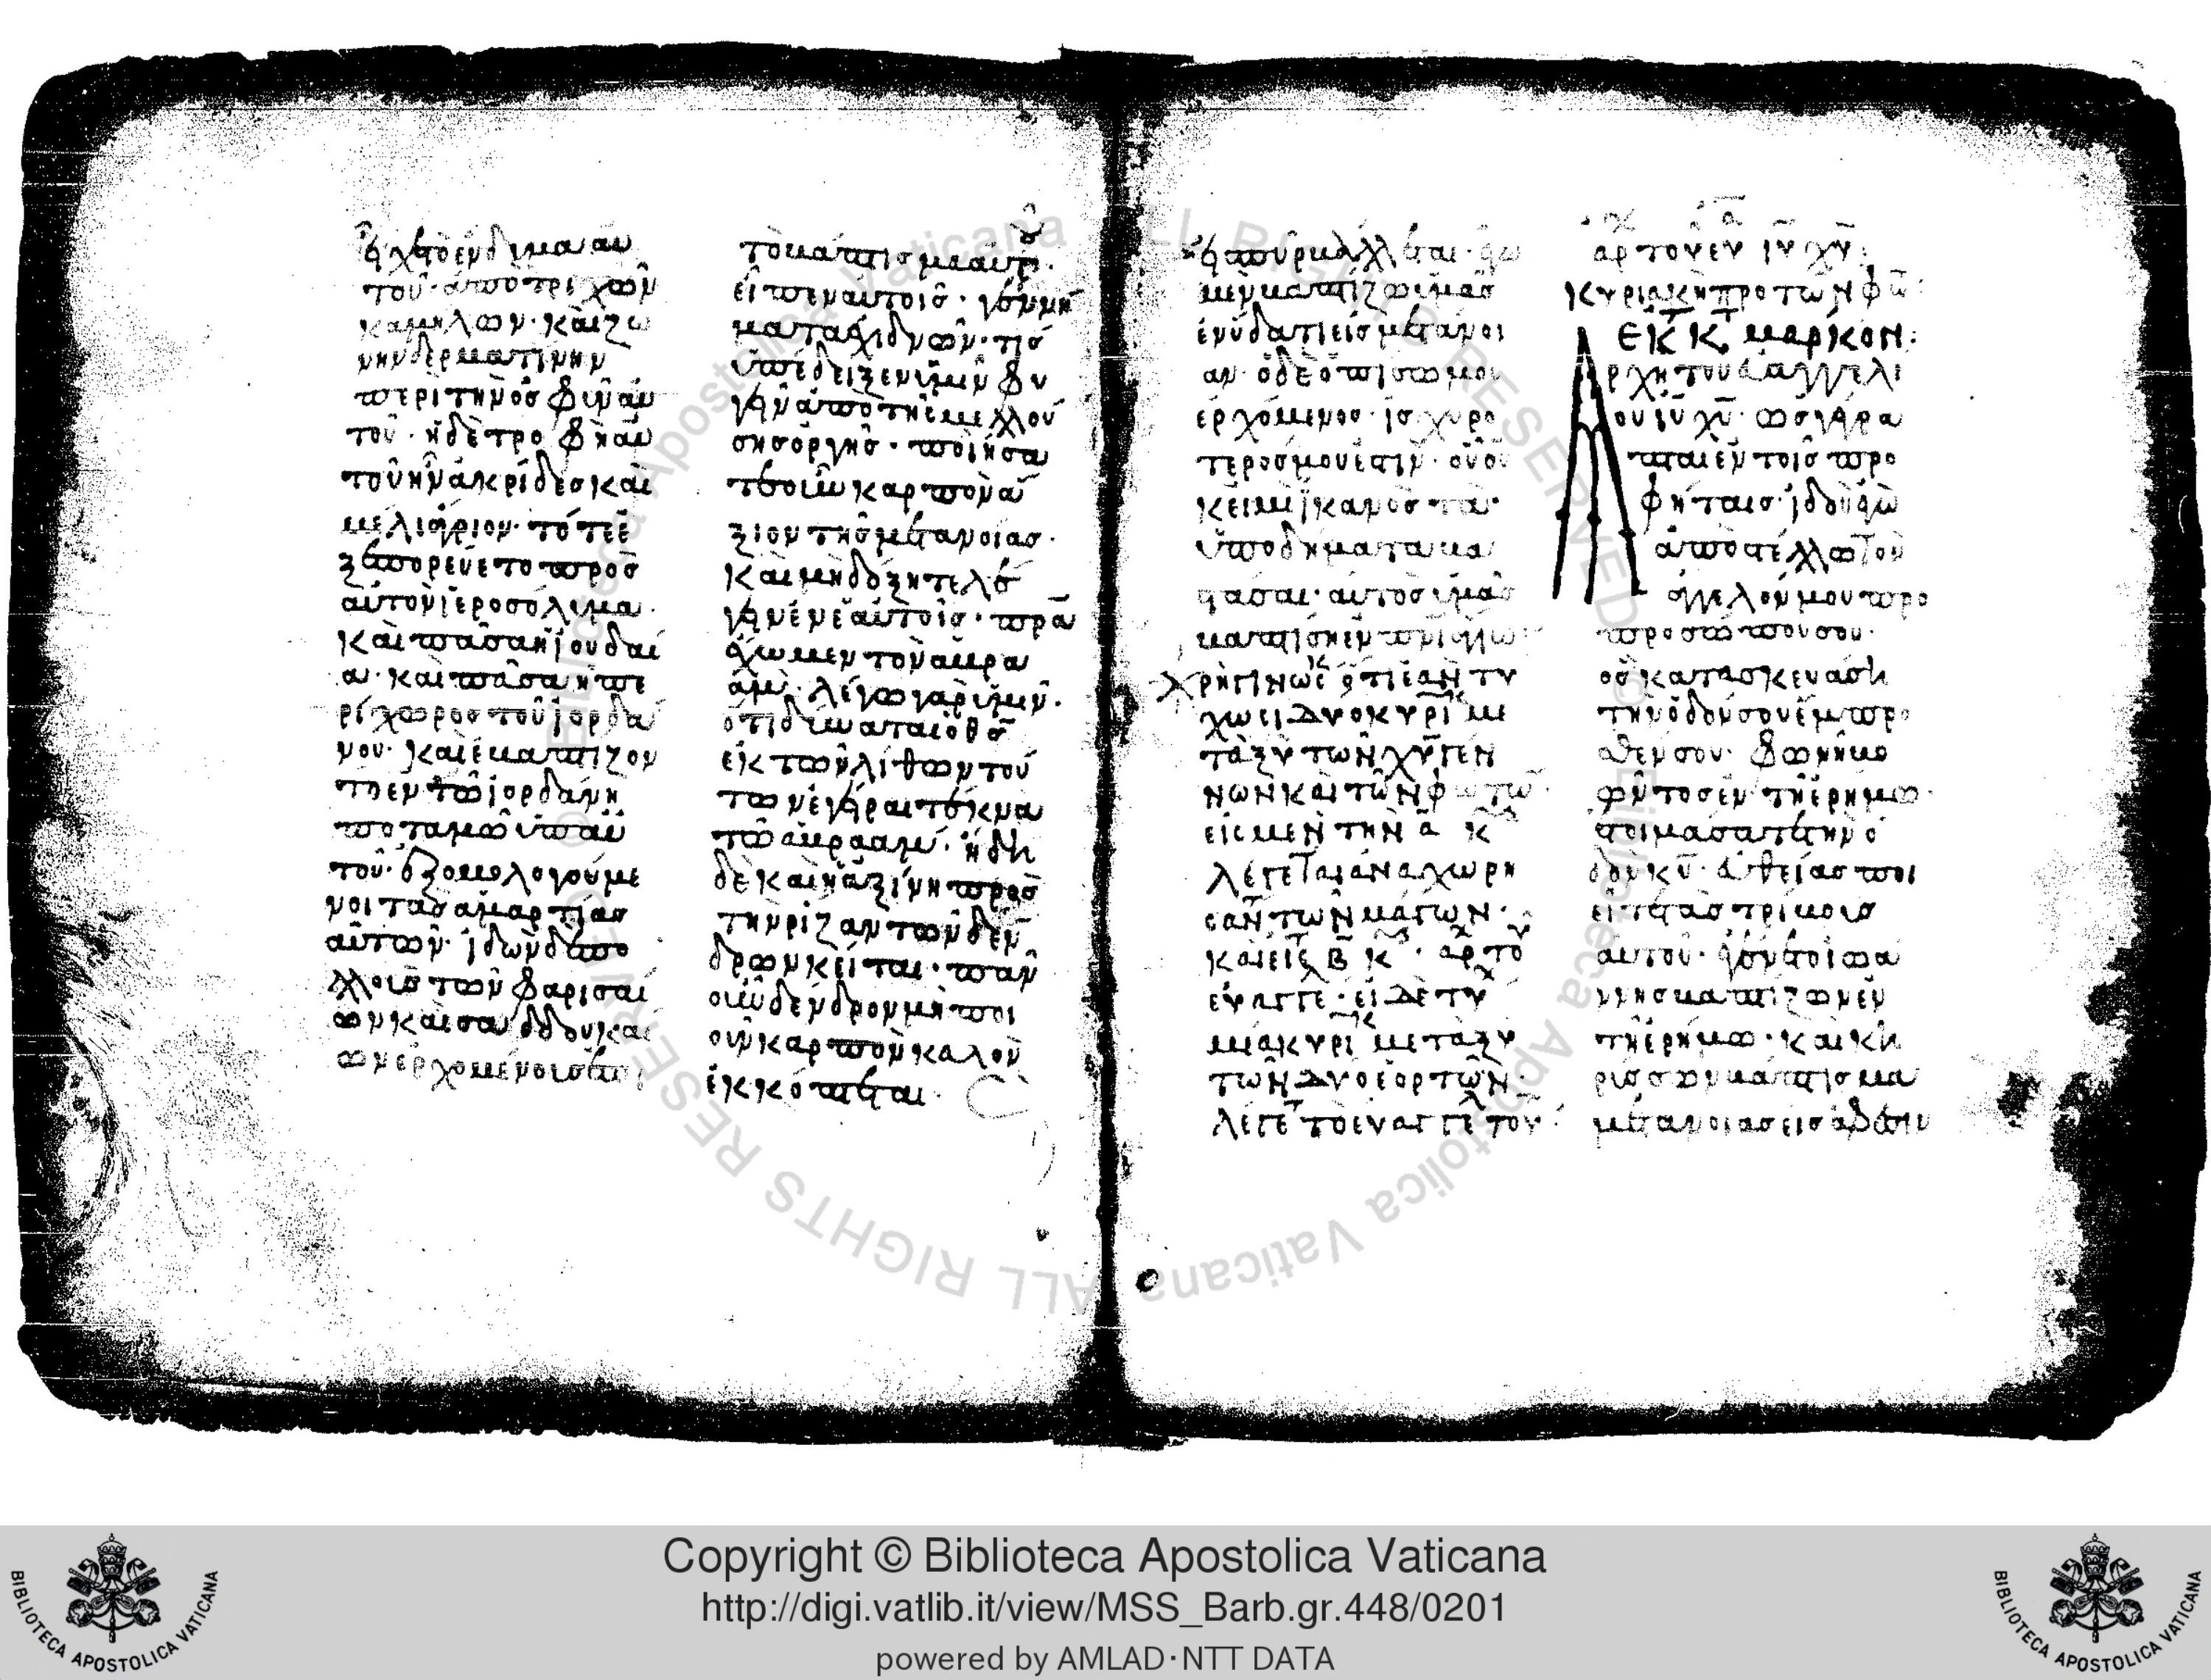 εἶχε τὸ ἔνδυμα αὐ
τοῦ· ἀπὸ τριχῶν
καμήλων· καὶ ζώ
νην δερματίνην
περὶ τὴν ὀσφῦν αὐ
τοῦ· ἡ δὲ τροφὴ αὐ
τοῦ ἦν ἀκρίδες καὶ
μέλι ἄγριον· τότε ἐ
ξεπορεύετο πρὸς
αὐτὸν ἱεροσόλυμα·
καὶ πᾶσα ἡ ἰουδαί
α· καὶ πᾶσα ἡ πε
ρίχωρος τοῦ ἰορδά
νου· καὶ ἐβαπτίζον
το ἐν τῶ ἰορδάνη
ποταμῶ ὑπ' αὐ
τοῦ· ἐξομολογούμε
νοι τὰς ἁμαρτίας
αὐτῶν· ἰδὼν δὲ πο
λλοὺς τῶν φαρισαί
ων καὶ σαδδουκαί
ων ἐρχομένους ἐπὶ
τὸ βάπτισμα αὐτοῦ·
εἶπεν αὐτοῖς· γεννή
ματα ἐχιδνῶν· τίς
ὑπέδειξεν ὑμῖν φυ
γεῖν ἀπὸ τῆς μελλού
σης ὀργῆς· ποιήσα
τε οὖν καρπὸν ἄ
ξιον τῆς μετανοίας·
καὶ μὴ δόξητε λέ
γειν ἐν ἑαυτοῖς· πρα
ἔχωμεν τὸν ἀβρα
άμ· λέγω γὰρ ὑμῖν·
ὅτι δύναται ὁ θς
ἐκ τῶν λίθων τού
των ἐγεῖραι τέκνα
τῶ ἀβραάμ· ἤδη
δὲ καὶ ἡ ἀξίνη πρὸς
τὴν ρίζαν τῶν δέν
δρων κεῖται· πᾶν
οὖν δένδρον μὴ ποι
οῦν καρπὸν καλὸν
ἐκκόπτεται·
εἰς πῦρ βάλλεται· ἐγὼ
μὲν βαπτίζω ὑμᾶς
ἐν ὕδατι εἰς μετάνοι
αν· ὁ δὲ ὀπίσω μου
ἐρχόμενος· ἰσχυρό
τερός μού ἐστιν· οὗ οὐ
κ εἰμὶ ἱκανὸς τὰ
ὑποδήματα βα
στάσαι· αὐτὸς ὑμᾶς
βαπτίσει ἐν πνι ἁγίω·
χρὴ γινώσκ ὅτι ἐὰν τύ
χωσι δύο κυριακ με
ταξὺ τῶν χυ γεν
νων καὶ τῶν φώτων·
εἰς μὲν τὴν α κ
λέγεται ἀναχωρη
σάν τῶν μάγων·
καὶ εἰς β κ· ἀρ το
εὐαγγε· εἰ δὲ τύχ
μία κυρι μεταξὺ
τῶν δύο ἑορτῶν·
λέγετ τὸ εὐαγγέ τοῦ·
ἀρ τοῦ εὐ ιυ χυ·
κυριακὴ πρὸ τῶν φώ
ἐκ τ κτ μάρκον·
Ἀρχὴ τοῦ εὐαγγελί
ου ιυ χυ· ὡς γέγρα
πται ἐν τοῖς προ
φήταις· ἰδοὺ ἐγὼ
ἀποστέλλω τὸν
ἄγγελόν μου πρὸ
προσώπου σου·
ὃς κατασκευάσει
τὴν ὁδόν σου ἔμπρο
σθεν σου· φωνὴ βο
ῶντος ἐν τῆ ἐρήμω·
ἑτοιμάσατε τὴν ὁ
δὸν κυ· εὐθείας ποι
εῖτε τὰς τρίβους
αὐτοῦ· ἐγένετο ἰωά
ννης βαπτίζων ἐν
τῆ ἐρήμω· καὶ κη
ρύσσων βάπτισμα
μετανοίας εἰς ἄφεσιν
Copyright © Biblioteca Apostolica Vaticana
http://digi.vatlib.it/view/MSS_Barb.gr.448/0201
powered by AMLAD·NTT DATA